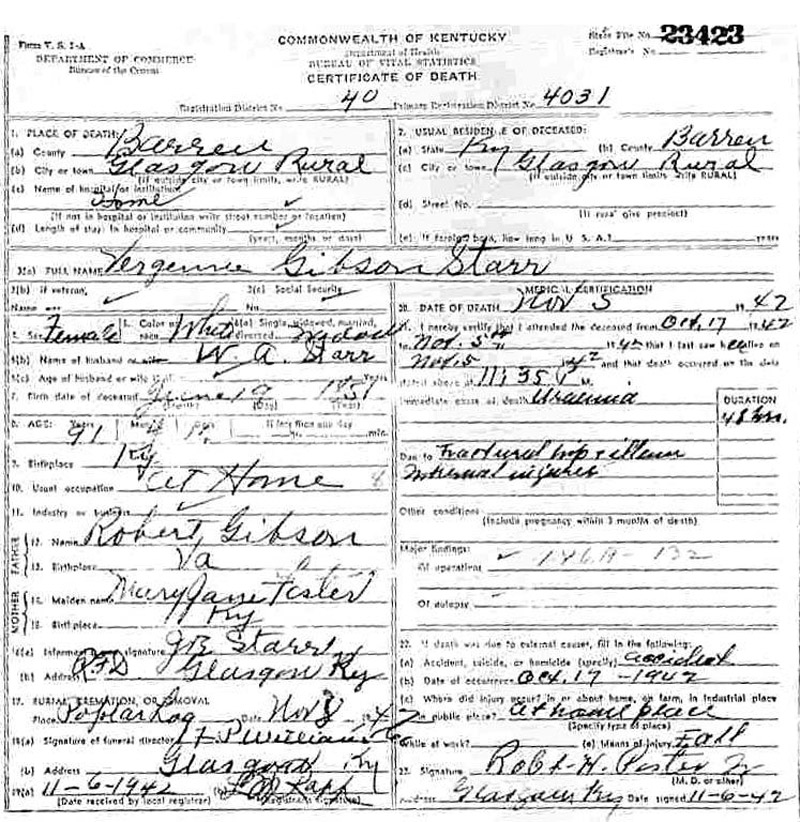 Form V. S. 1-A
DEPARTMENT OF COMMERCE
Bureau of the Census
COMMONWEALTH OF KENTUCKY
Department of Health
BUREAU OF VITAL STATISTICS
CERTIFICATE OF DEATH
State File No. 23423
Registrar's No.
Registration District No. 40 Primary Registration District No. 4031
1. PLACE OF DEATH:
(a) County Barren
(b) City or town Glasgow Rural
(If outside city or town limits, write RURAL)
(c) Name of hospital or institution:
Home
(If not in hospital or institution write street number or location)
(d) Length of stay: In hospital or community
(years, months or days)
2. USUAL RESIDENCE OF DECEASED:
(a) State Ky (b) County Barren
(c) City or town Glasgow Rural
(If outside city or town limits write RURAL)
(d) Street No.
(If rural give precinct)
(e) If foreign born, how long in U. S. A.? years
3(a) FULL NAME Vergennie Gibson Starr
3(b) If veteran, 3(c) Social Security
Name war No.
4. Sex Female 5. Color or race White 6(a) Single, widowed, married, divorced
6(b) Name of husband or wife W. A. Starr
6(c) Age of husband or wife if Years
7. Birth date of deceased June 19 1851
(Month) (Day) (Year)
8. AGE: Years 91 Months Days If less than one day
min.
9. Birthplace Ky
10. Usual occupation At Home
11. Industry or business
FATHER
12. Name Robert Gibson
13. Birthplace Va
MOTHER
14. Maiden name Mary Jane
15. Birthplace Ky
16(a) Informant's signature Starr
(b) Address RFD Glasgow Ky
17. BURIAL, CREMATION, OR REMOVAL
Place Poplar Log Date Nov
18(a) Signature of funeral director
(b) Address Glasgow Ky
19(a) 11-6-1942 (b)
(Date received by local registrar) (Registrar's signature)
MEDICAL CERTIFICATION
20. DATE OF DEATH Nov 5 1942
21. I hereby certify that I attended the deceased from Oct. 17 1942
to Nov. 5th 1942 that I last saw her alive on
Nov. 5 1942 and that death occurred on the date
stated above at 11:35 P M.
Immediate cause of death Uraemia
DURATION
48 hrs.
Due to Fractured hip
Internal injuries
Other conditions
(Include pregnancy within 3 months of death)
Major findings:
Of operations
Of autopsy
22. If death was due to external causes, fill in the following:
(a) Accident, suicide, or homicide (specify) accident
(b) Date of occurrence Oct. 17 - 1942
(c) Where did injury occur? in or about home, on farm, in industrial place
in public place? at home place
(Specify type of place)
While at work? (e) Means of injury Fall
23. Signature Robt. H.
(M. D. or other)
Address Glasgow Ky Date signed 11-6-42